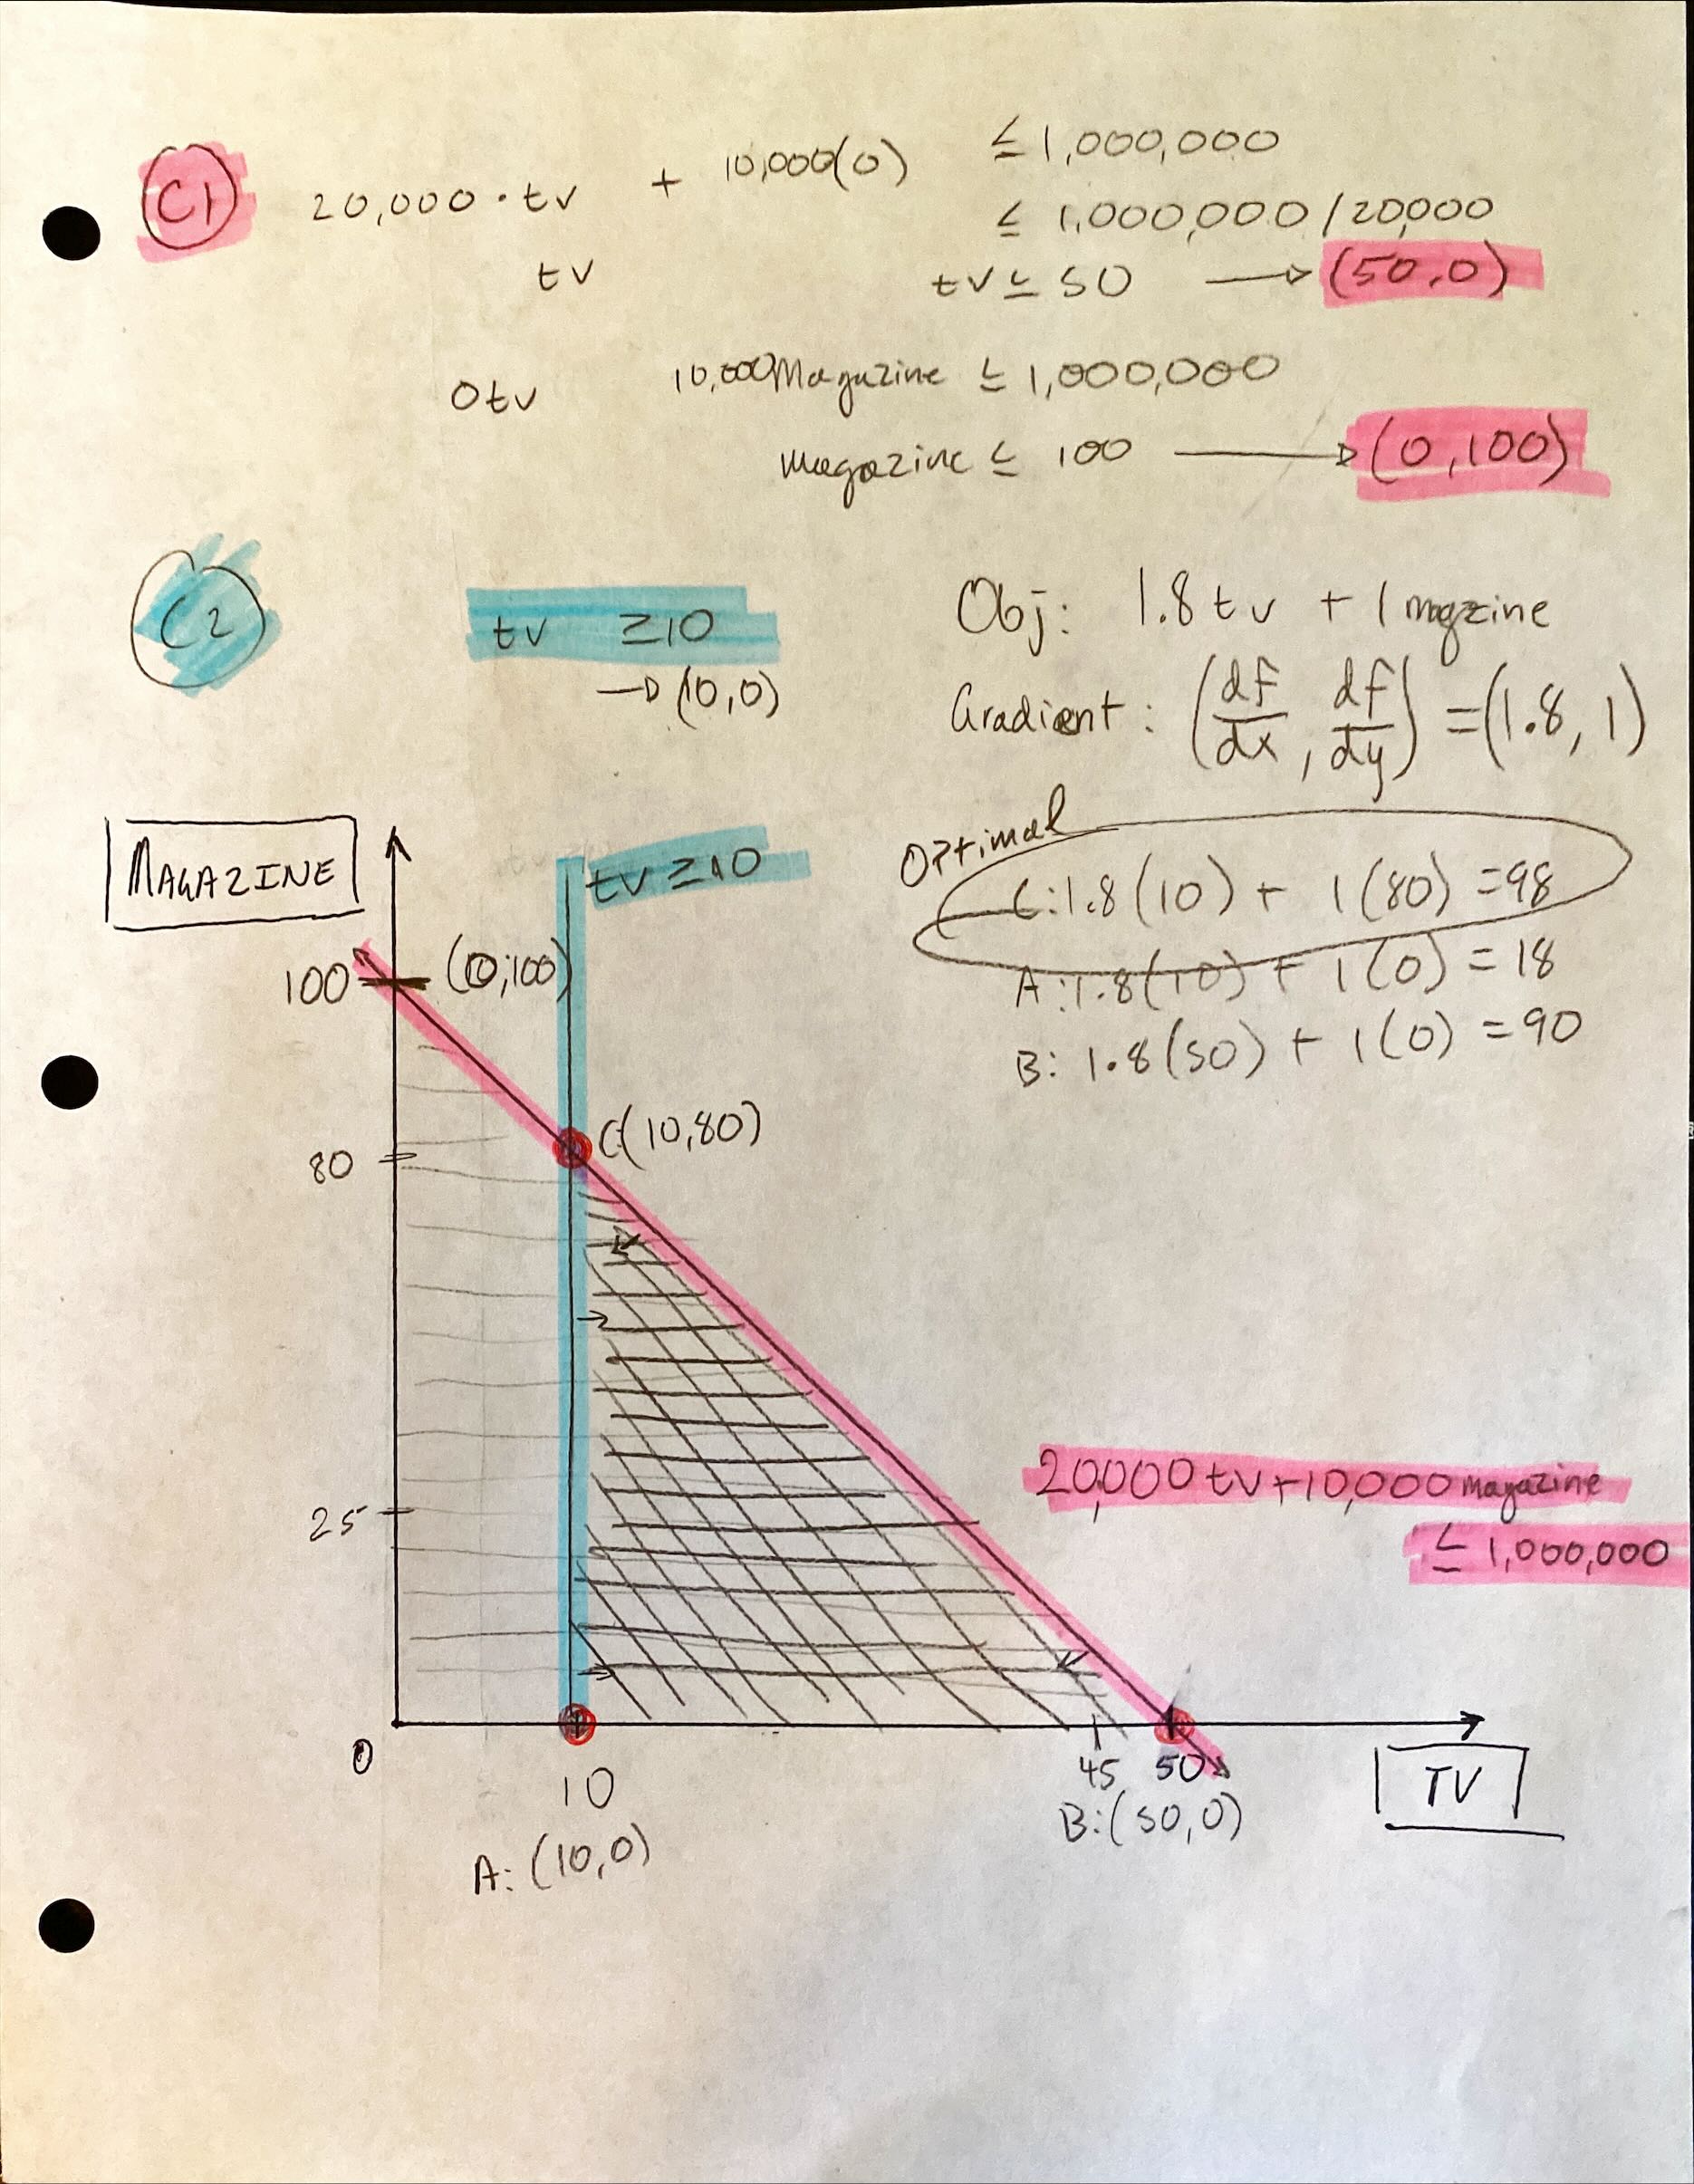 C1 20,000 · tv + 10,000(0) ≤ 1,000,000
≤ 1,000,000 / 20,000
tv tv ≤ 50 → (50,0)
0tv 10,000 Magazine ≤ 1,000,000
magazine ≤ 100 → (0,100)
C2 tv ≥ 10
→ (10,0)
Obj: 1.8 tv + 1 magzine
Gradient: (df/dx, df/dy) = (1.8, 1)
Optimal
C: 1.8(10) + 1(80) = 98
A: 1.8(10) + 1(0) = 18
B: 1.8(50) + 1(0) = 90
MAGAZINE
tv ≥ 10
100 (0,100)
80 C(10,80)
25
20,000 tv + 10,000 magazine
≤ 1,000,000
0 10 45 50 TV
A: (10,0) B: (50,0)